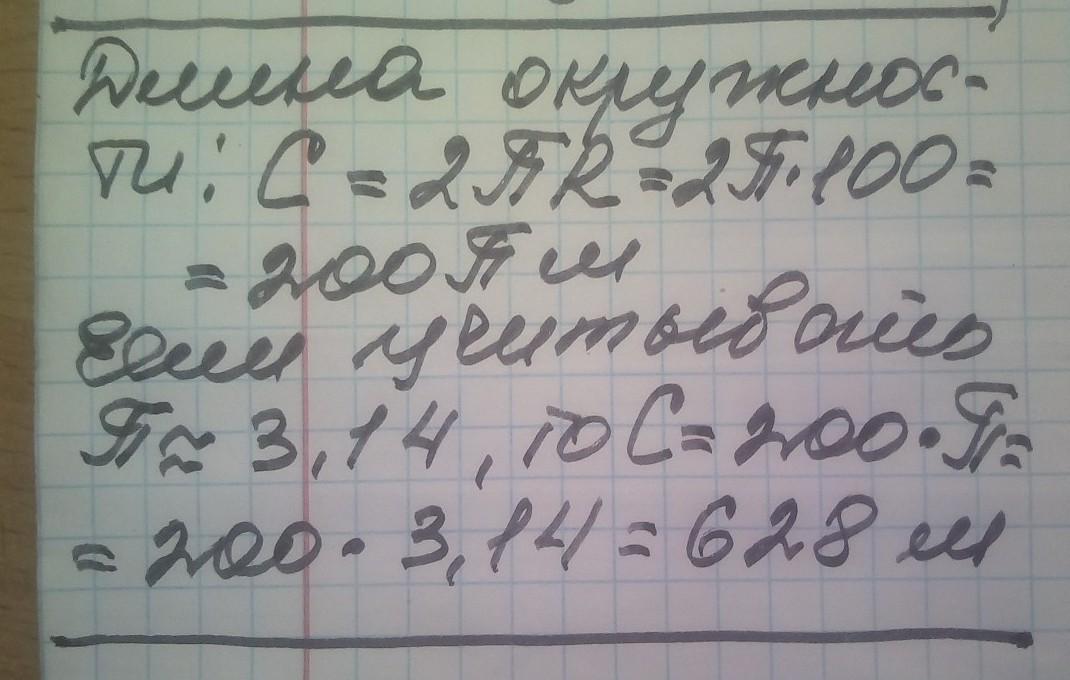 Длина окружнос-
ти: C = 2πR = 2π·100 =
= 200π м
Если учитывать
π ≈ 3,14, то C = 200·π =
= 200·3,14 = 628 м